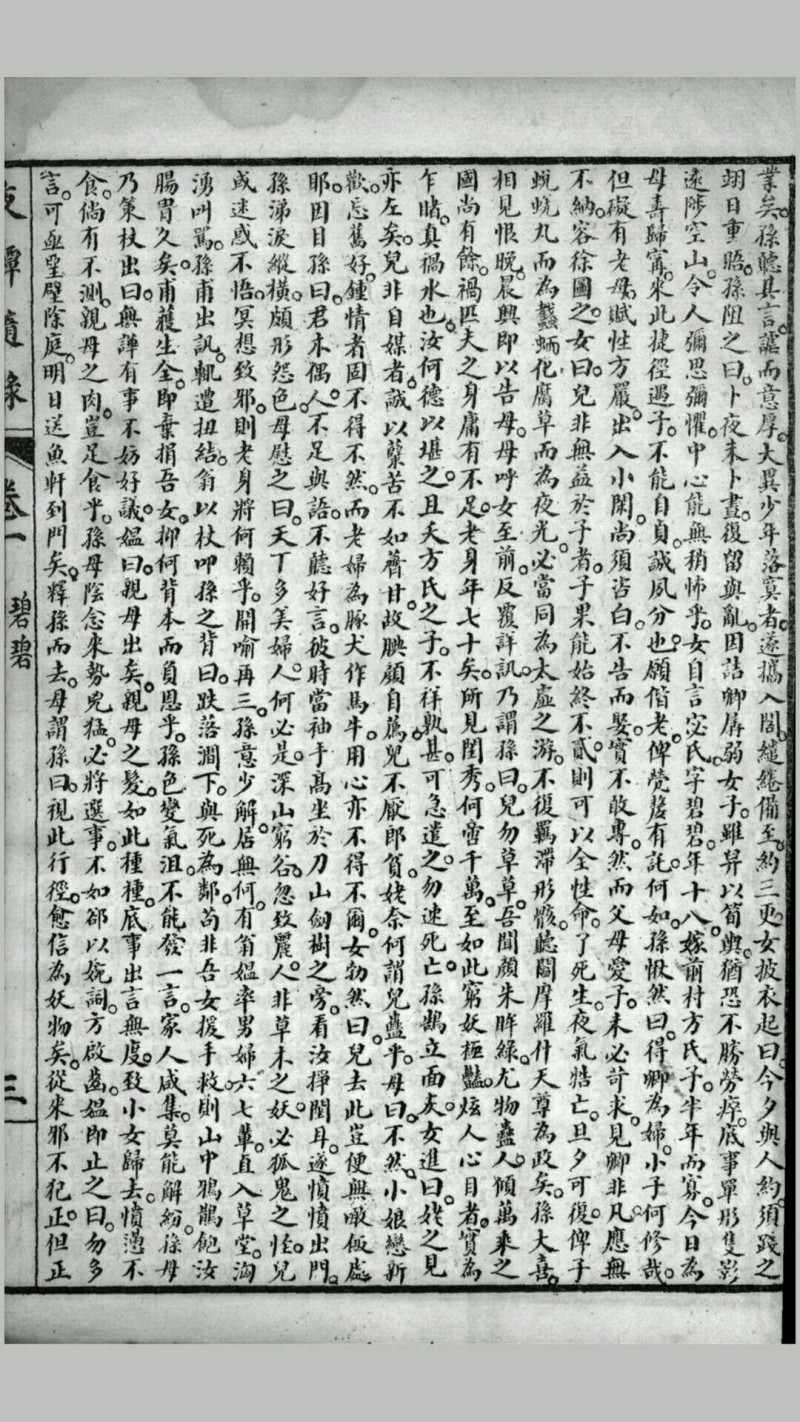 業矣。孫聽其言。謔而意厚。大異少年落寞者。遂攜入閤。繾綣備至。約三更。女披衣起曰。今夕與人約。須踐之
翊日重晤。孫阻之曰。卜夜未卜晝。復留與亂。因詰卿孱弱女子。雖舁以筍輿。猶恐不勝勞瘁。底事單形隻影
遠陟空山。令人彌思彌懼。中心能無稍怖乎。女自言宓氏。字碧碧。年十八。嫁前村方氏子。半年而寡。今日為
母壽歸甯。來此捷徑遇子。不能自貞。誠夙分也。願偕老。俾煢嫠有託。何如。孫愀然曰。得卿為婦。小子何修哉。
但礙有老母。賦性方嚴。出入小閑。尚須咨白。不告而娶。實不敢專。然而父母愛子。未必苛求。見卿非凡。應無
不納。容徐圖之。女曰。兒非無益於子者。子果能始終不貳。則可以全性命。了死生。夜氣牿亡。旦夕可復。俾子
蛻蜣丸而為蠶蛹。化腐草而為夜光。必當同為太虛之游。不復羈滯形骸。聽閻摩羅什天尊為政矣。孫大喜。
相見恨晚。晨興即以告母。母呼女至前。反覆詳訊。乃謂孫曰。兒勿草草。吾聞顏朱眸綠。尤物蠱人。傾萬乘之
國尚有餘。禍匹夫之身庸有不足。老身年七十矣。所見閨秀。何啻千萬。至如此窮妖極豔。炫人心目者。實為
乍睹。真禍水也。汝何德以堪之。且夭方氏之子。不祥孰甚。可急遣之。勿速死亡。孫鵠立面灰。女進曰。姥之見
亦左矣。兒非自媒者。誠以櫱苦不如薺甘。故腆顏自薦。兒不厭郎貧。姥奈何謂兒蠱乎。母曰。不然。小娘戀新
歡。忘舊好。鍾情者固不得不然。而老婦為豚犬作馬牛。用心亦不得不爾。女勃然曰。兒去此豈便無噉飯處
耶。因目孫曰。君木偶人。不足與語。不聽好言。彼時當袖手高坐於刀山劍樹之旁。看汝掙閧耳。遂憤憤出門。
孫涕淚縱橫。頗形怨色。母慰之曰。天下多美婦人。何必是。深山窮谷。忽致麗人。非草木之妖。必狐鬼之怪。兒
或迷惑不悟。冥想致邪。則老身將何賴乎。開喻再三。孫意少解。居無何。有翁媼率男婦六七輩。直入草堂。洶
湧叫罵。孫甫出訊。輒遭扭結。翁以杖叩孫之背曰。跌落澗下。與死為鄰。苟非吾女援手救。則山中鴉鵲飽汝
腸胃久矣。甫獲生全。即棄捐吾女。抑何背本而負恩乎。孫色變氣沮。不能發一言。家人咸集。莫能解紛。孫母
乃策杖出曰。無譁有事不妨好議。媼曰。親母出矣。親母之髮如此種種。底事出言無度。致小女歸去。憤懣不
食。倘有不測。親母之肉。豈足食乎。孫母陰念來勢兇猛。必將選事。不如卻以婉詞。方啟齒。媼即止之曰。勿多
言。可亟塈壁除庭。明日送魚軒到門矣。釋孫而去。母謂孫曰。視此行徑。愈信為妖物矣。從來邪不犯正。但正
夜譚隨錄
卷一 碧碧
三